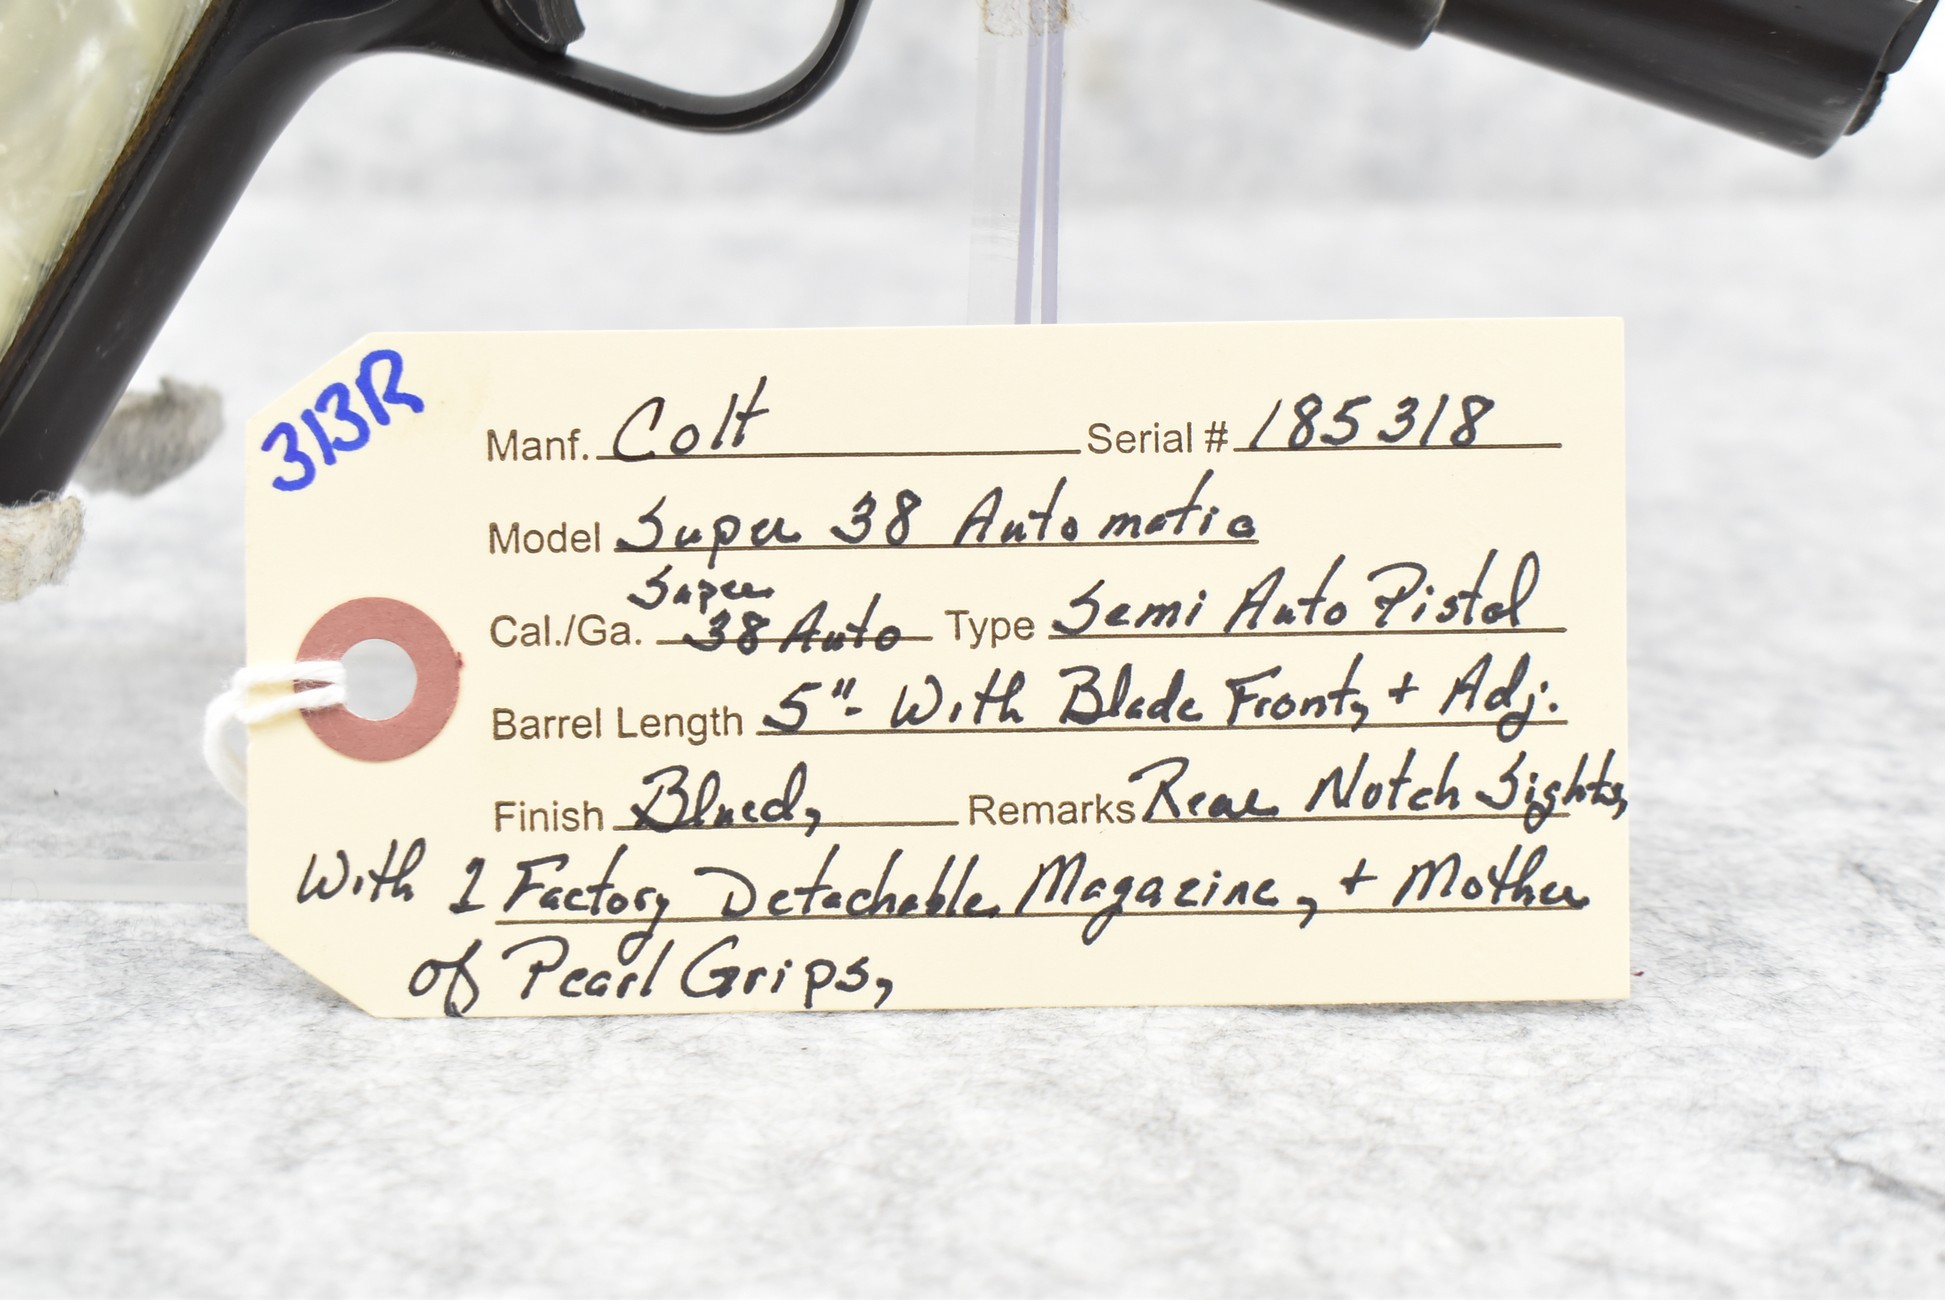 313R
Manf. Colt Serial # 185318
Model Super 38 Automatic
Super
Cal./Ga. 38 Auto Type Semi Auto Pistol
Barrel Length 5"- With Blade Front, + Adj.
Finish Blued, Remarks Rear Notch Sights,
With 1 Factory Detachable Magazine, + Mother
of Pearl Grips,